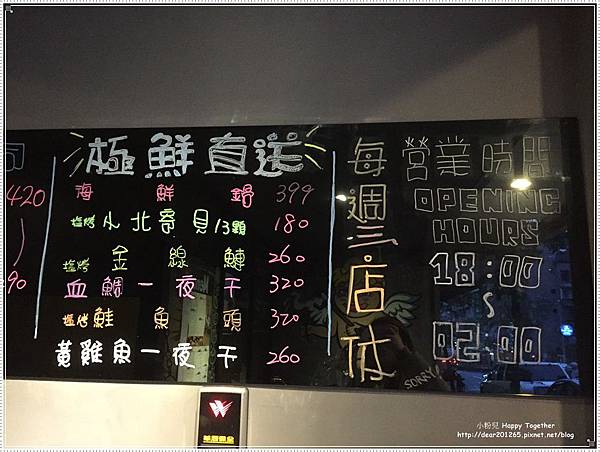 420
90
極鮮直送
海鮮鍋 399
塩烤小北寄貝13顆 180
塩烤金線鰱 260
血鯛一夜干 320
塩烤鮭魚頭 320
黃雞魚一夜干 260
每週三店休
SORRY
營業時間
OPENING
HOURS
18:00
02:00
小粉兒 Happy Together
http://dear201265.pixnet.net/blog